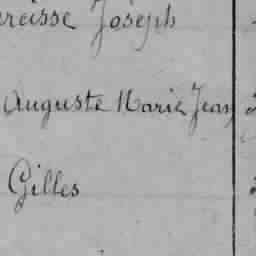 Joseph
Auguste Marie Jean
Gilles